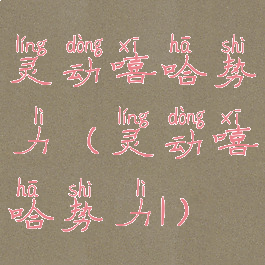 líng dòng xī hā shì
灵动嘻哈势
lì líng dòng xī
力（灵动嘻
hā shì lì
哈势力|）